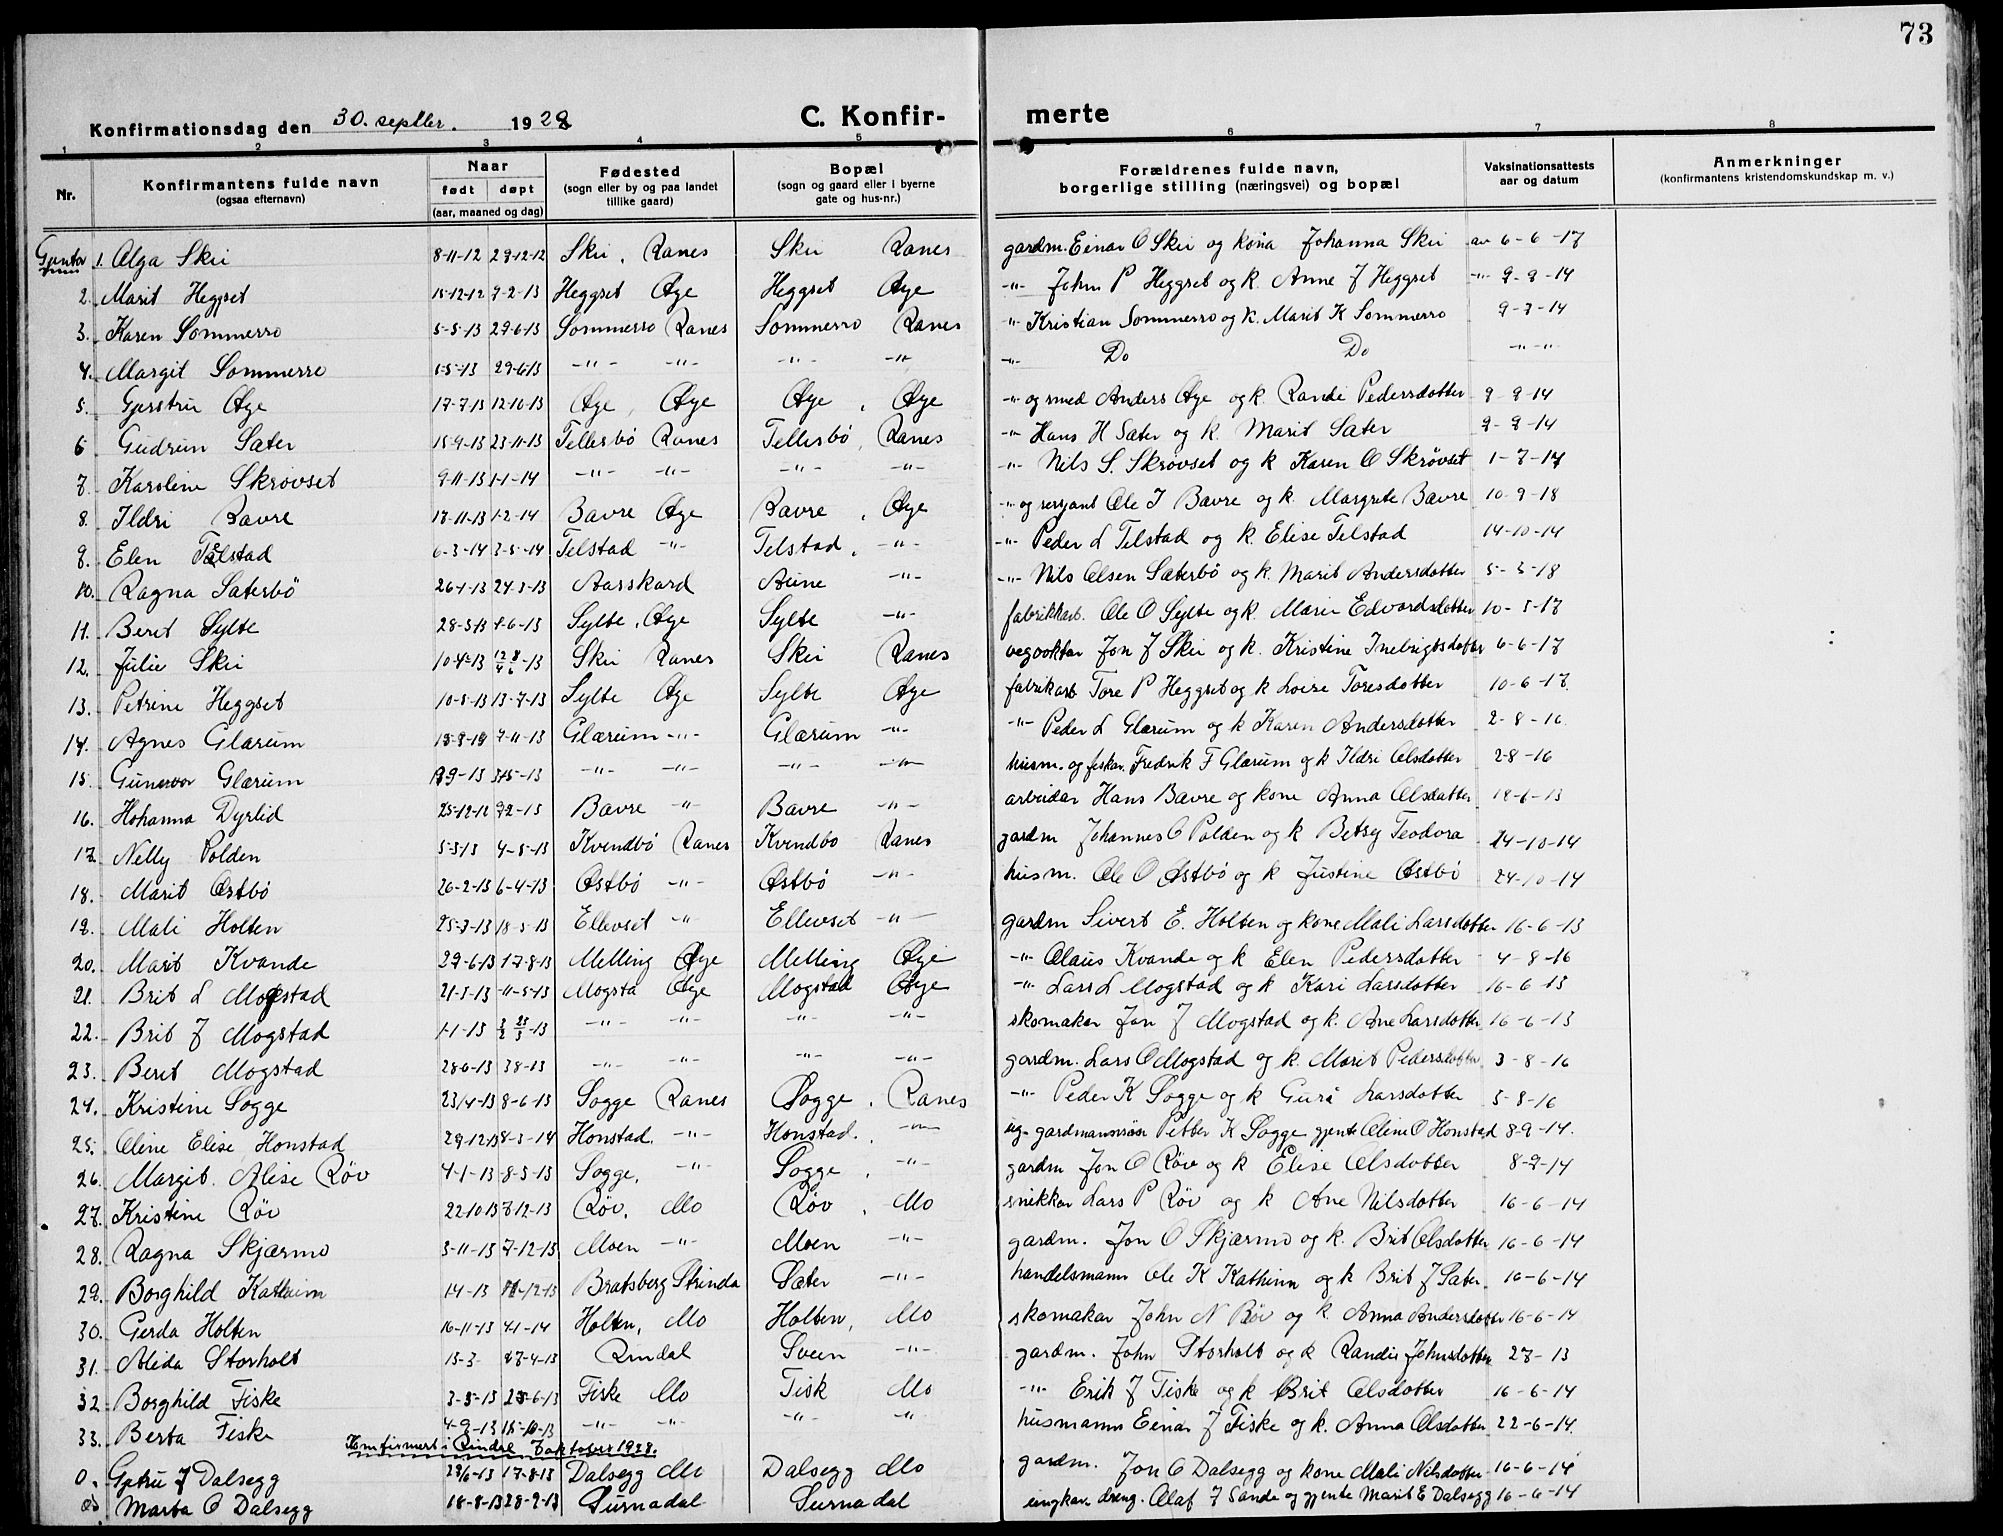 73
Konfirmationsdag den 30. septbr. 1928
C. Konfirmerte
1 2 3 4 5 6 7 8
Nr. Konfirmantens fulde navn (ogsaa efternavn) Naar født døpt (aar, maaned og dag) Fødested (sogn eller by og paa landet tillike gaard) Bopæl (sogn og gaard eller i byerne gate og hus-nr.) Forældrenes fulde navn, borgerlige stilling (næringsvei) og bopæl Vaksinationsattests aar og datum Anmerkninger (konfirmantens kristendomskundskap m. v.)
1. Olga Skei 8-11-12 29-12-12 Skei, Ranes Skei Ranes gardm. Einar O Skei og kona Johanna Skei av 6-6-17
2. Marit Heggset 15-12-12 9-2-13 Heggset Øye Heggset Øye -"- John P Heggset og k. Anne J Heggset -"- 9-9-14
3. Karen Sommerro 5-5-13 29-6-13 Sommerro Ranes Sommerro Ranes -"- Kristian Sommerro og k. Marit K Sommerro 9-7-14
4. Margit Sommerro 1-5-13 29-6-13 -"- -"- -"- -"- -"- Do Do -"- -"-
5. Gjertru Øye 17-7-13 12-10-13 Øye, Øye Øye, Øye -"- og smed Anders Øye og k. Randi Pedersdotter 9-9-14
6 Gudrun Sæter 15-9-13 23-11-13 Tellesbø Ranes Tellesbø, Ranes -"- Hans H Sæter og k. Marit Sæter 9-9-14
7. Karoline Skrøvset 9-11-13 1-1-14 -"- -"- -"- -"- -"- Nils S. Skrøvset og k Karen O Skrøvset 1-7-14
8. Ildri Bævre 17-11-13 1-2-14 Bævre Øye Bævre, Øye -"- og sersjant Ole I Bævre og k. Margrete Bævre 10-9-18
9. Elen Telstad 6-3-14 3-5-14 Telstad -"- Telstad, -"- -"- Peder L Telstad og k. Elise Telstad 14-10-14
10. Ragna Sæterbø 26-1-13 24-3-13 Aarskard Aune -"- -"- Nils Olsen Sæterbø og k. Marit Andersdotter 5-5-18
11. Berit Sylte 28-3-13 1-6-13 Sylte, Øye Sylte -"- fabrikkarb. Ole O Sylte og k. Marie Edvardsdotter 10-5-17
12. Julie Skei 10-4-13 Skei Ranes Skei Ranes vegvokter Jon J Skei og k. Kristine Inebrigtsdotter 6-6-17
13. Petrine Heggset 10-5-13 13-7-13 Sylte Øye Sylte Øye fabrikarb Tore P Heggset og k Lovise Toresdotter 10-6-17
14. Agnes Glærum 9-11-13 Glærum -"- Glærum -"- -"- Peder L Glærum og k Karen Andersdotter 2-8-16
15. Gunnvor Glærum -"- -"- -"- -"- husm. og fiskar Fredrik F Glærum og k Ildri Olsdotter 2-8-16
16. Hohanna Dyrlid 25-12-12 9-2-13 Bævre -"- Bævre -"- arbeidar Hans Bævre og kone Anna Olsdatter 18-6-13
17. Nelly Polden 5-3-13 4-5-13 Kvendbø Ranes Kvendbo Ranes gardm Johannes O Polden og k Betsy Teodora 24-10-14
18. Marit Østbø 26-2-13 6-4-13 Østbø -"- Østbø -"- husm. Ole O Østbø og k Justine Østbø 24-10-14
19. Mali Holten 25-3-13 18-5-13 Ellevset -"- Ellevset -"- gardm Sivert E. Holten og kone Mali Larsdotter 16-6-13
20. Marit Kvande 29-6-13 17-8-13 Melling Øye Melling Øye -"- Olaus Kvande og k Elen Pedersdotter 4-8-16
21. Brit L Mogstad 21-3-13 11-5-13 Mogsta Øye Mogstad Øye -"- Lars L Mogstad og k Kari Larsdotter 16-6-13
22. Brit J Mogstad 1-1-13 -"- -"- -"- -"- skomaker Jon J Mogstad og k. Ane Larsdotter 16-6-13
23. Berit Mogstad 28-6-13 3-8-13 -"- -"- -"- -"- gardm. Lars O Mogstad og k. Marit Pedersdotter 3-8-16
24. Kristine Sogge 23/4-13 8-6-13 Sogge Ranes Sogge, Ranes -"- Peder K Sogge og k Guri Larsdotter 5-8-16
25. Oline Elise Honstad 29-12-13 8-3-14 Honstad, -"- Honstad, -"- ug- gardmannssøn Petter K Sogge gjente Oline O Honstad 8-9-14.
26. Margit. Alise Røv 4-1-13 8-3-13 Sogge, -"- Sogge, -"- gardm Jon O Røv og k Elise Olsdotter 8-9-14
27. Kristine Røv 22-10-13 7-12-13 Røv, Mo Røv, Mo snikkar Lars P Røv og k Ane Nilsdotter 16-6-14
28. Ragna Skjærmo 3-11-13 7-12-13 Moen -"- Moen -"- gardm. Jon O Skjærmo og k. Brit Olsdotter 16-6-14
29. Borghild Kathinn Bratsberg Strinda Sæter -"- handelsmann Ole K Kathinn og k Brit J Sæter 16-6-14
30. Gerda Holten 16-11-13 4-1-14 Holten, Mo Holten, Mo skomakar John N Røv og k Anna Andersdotter 16-6-14
31. Alida Storholt 15-3- 27-4-13 Rindal Svein -"- gardm. John Storholt og k Randi Johnsdotter 27-13
32 Borghild Fiske 3-5-13 Fiske Mo Fisk Mo -"- Erik J Fiske og k Brit Olsdotter 16-6-14
33. Berta Fiske 4-9-13 -"- -"- -"- -"- husmann Einar J Fiske og k. Anna Olsdotter 22-6-14.
Konfirmert i Rindal 7 oktober 1928.
0. Gjertru J Dalsegg 29/6-13 17-8-13 Dalsegg Mo Dalsegg Mo gardm. Jon O Dalsegg og kone Mali Nilsdotter 16-6-14
Marta O Dalsegg 18-8-13 28-9-13 Surnadal Surnadal ungkar dreng. Olaf J Sande og gjente Marit E Dalsegg 16-6-14